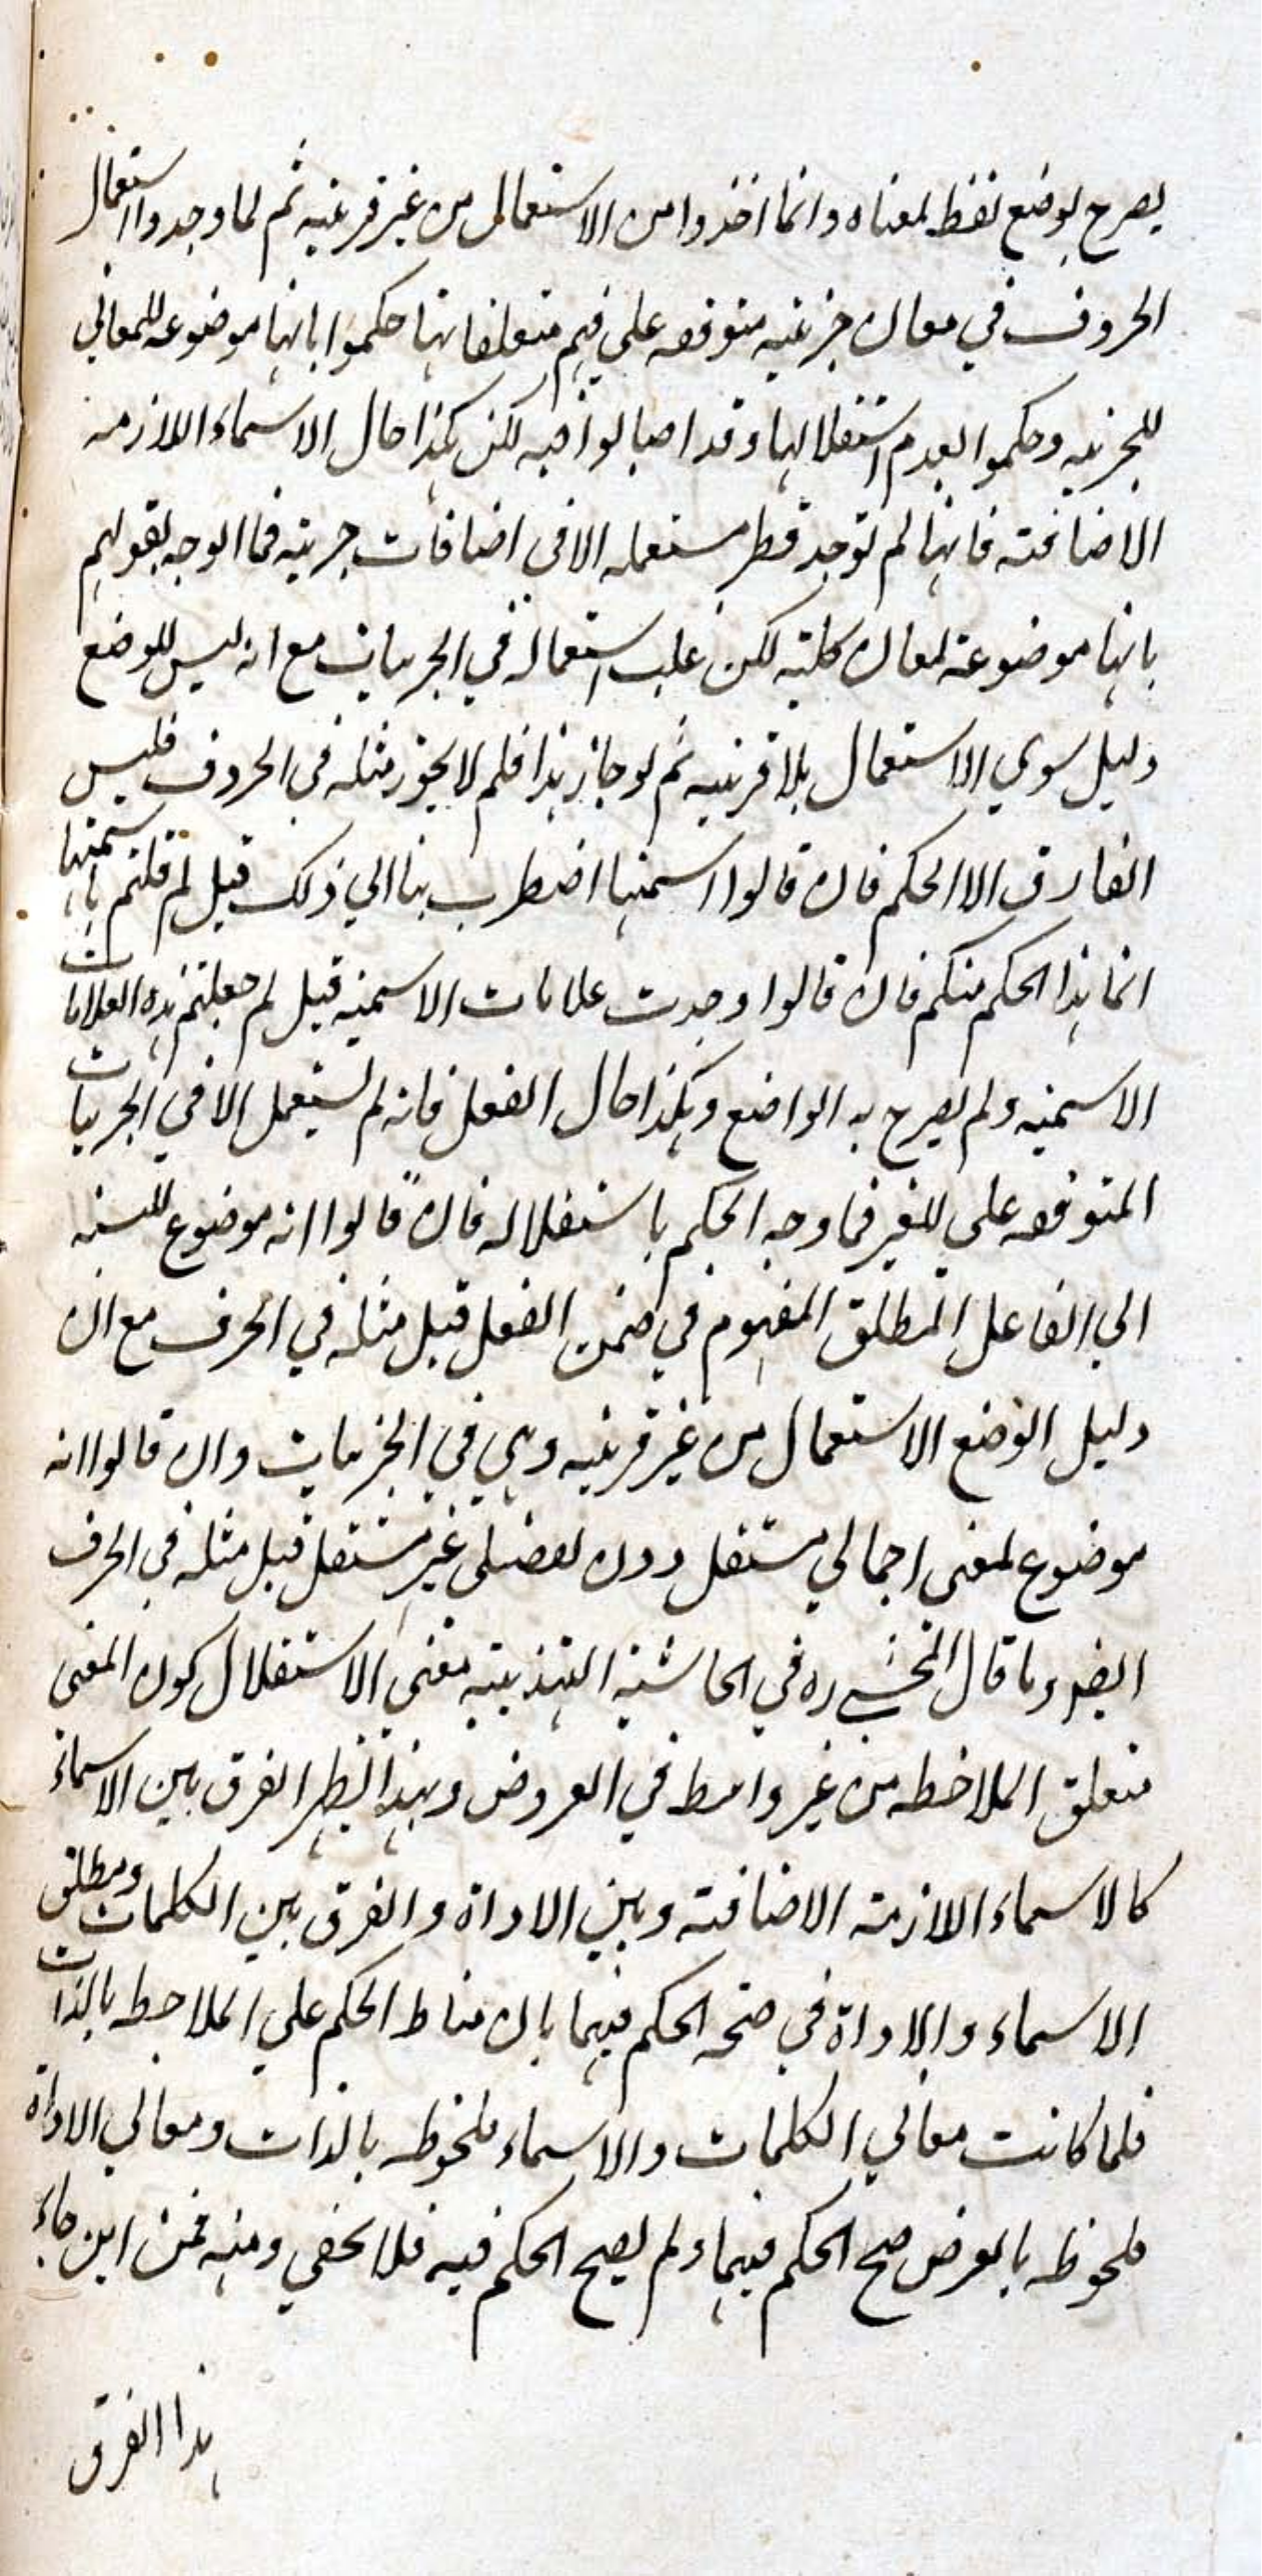 يصرح بوضع لفظ لمعناه وانما اخذوا من الاستعمال من غير قرينه ثم لما وجدوا استعمال
الحروف في معان جزئيه متوقفه على فهم متعلقاتها حكموا بانها موضوعه للمعاني
للجزئيه وحكموا بعدم استقلالها وقد اصابوا فيه لكن هكذا حال الاسماء اللازمه
الاضافته فانها لم توجد قط مستعمله الا في اضافات جزئيه فما الوجه بقولهم
بانها موضوعة لمعان كليته لكن غلب استعماله في الجزئيات مع انه ليس للوضع
دليل سوي الاستعمال بلا قرينيه ثم لو جاز هذا فلم لا يجوز مثله في الحروف فليس
الفارق الا الحكم فان قالوا اسميتها اضطرب بنا الي ذلك قيل لم قلتم باسميتها
انما هذا الحكم منكم فان قالوا وجدت علامات الاسميه قيل لم جعلتم هذه العلامات
الاسميه ولم يصرح به الواضع وهكذا حال الفعل فانه لم يستعمل الا في الجزئيات
المتوقفه على للغير فما وجه الحكم باستقلاله فان قالوا انه موضوع للنسبه
الي الفاعل المطلق المفهوم في ضمن الفعل قيل مثله في الحرف مع ان
دليل الوضع الاستعمال من غير قرينيه وهي في الجزئيات وان قالوا انه
موضوع لمعنى اجمالي مستقل دون تفصيلي غير مستقل قيل مثله في الحرف
ايضا وما قال المحشي ره في الحاشية التهذيبيه معنى الاستقلال كون المعنى
متعلق الملاحظه من غير واسطه في العروض وبهذا يظهر الفرق بين الاسماء
كالاسماء اللازمة الاضافته وبين الاداة والفرق بين الكلمات ومطلق
الاسماء والاداة في صحه الحكم فيهما بان مناط الحكم على الملاحظه بالذات
فلما كانت معاني الكلمات والاسماء ملحوظه بالذات ومعاني الاداة
ملحوظه بالعرض صح الحكم فيهما ولم يصح الحكم فيه فلا يخفي وهنه فمن اين جاء
هذا الفرق